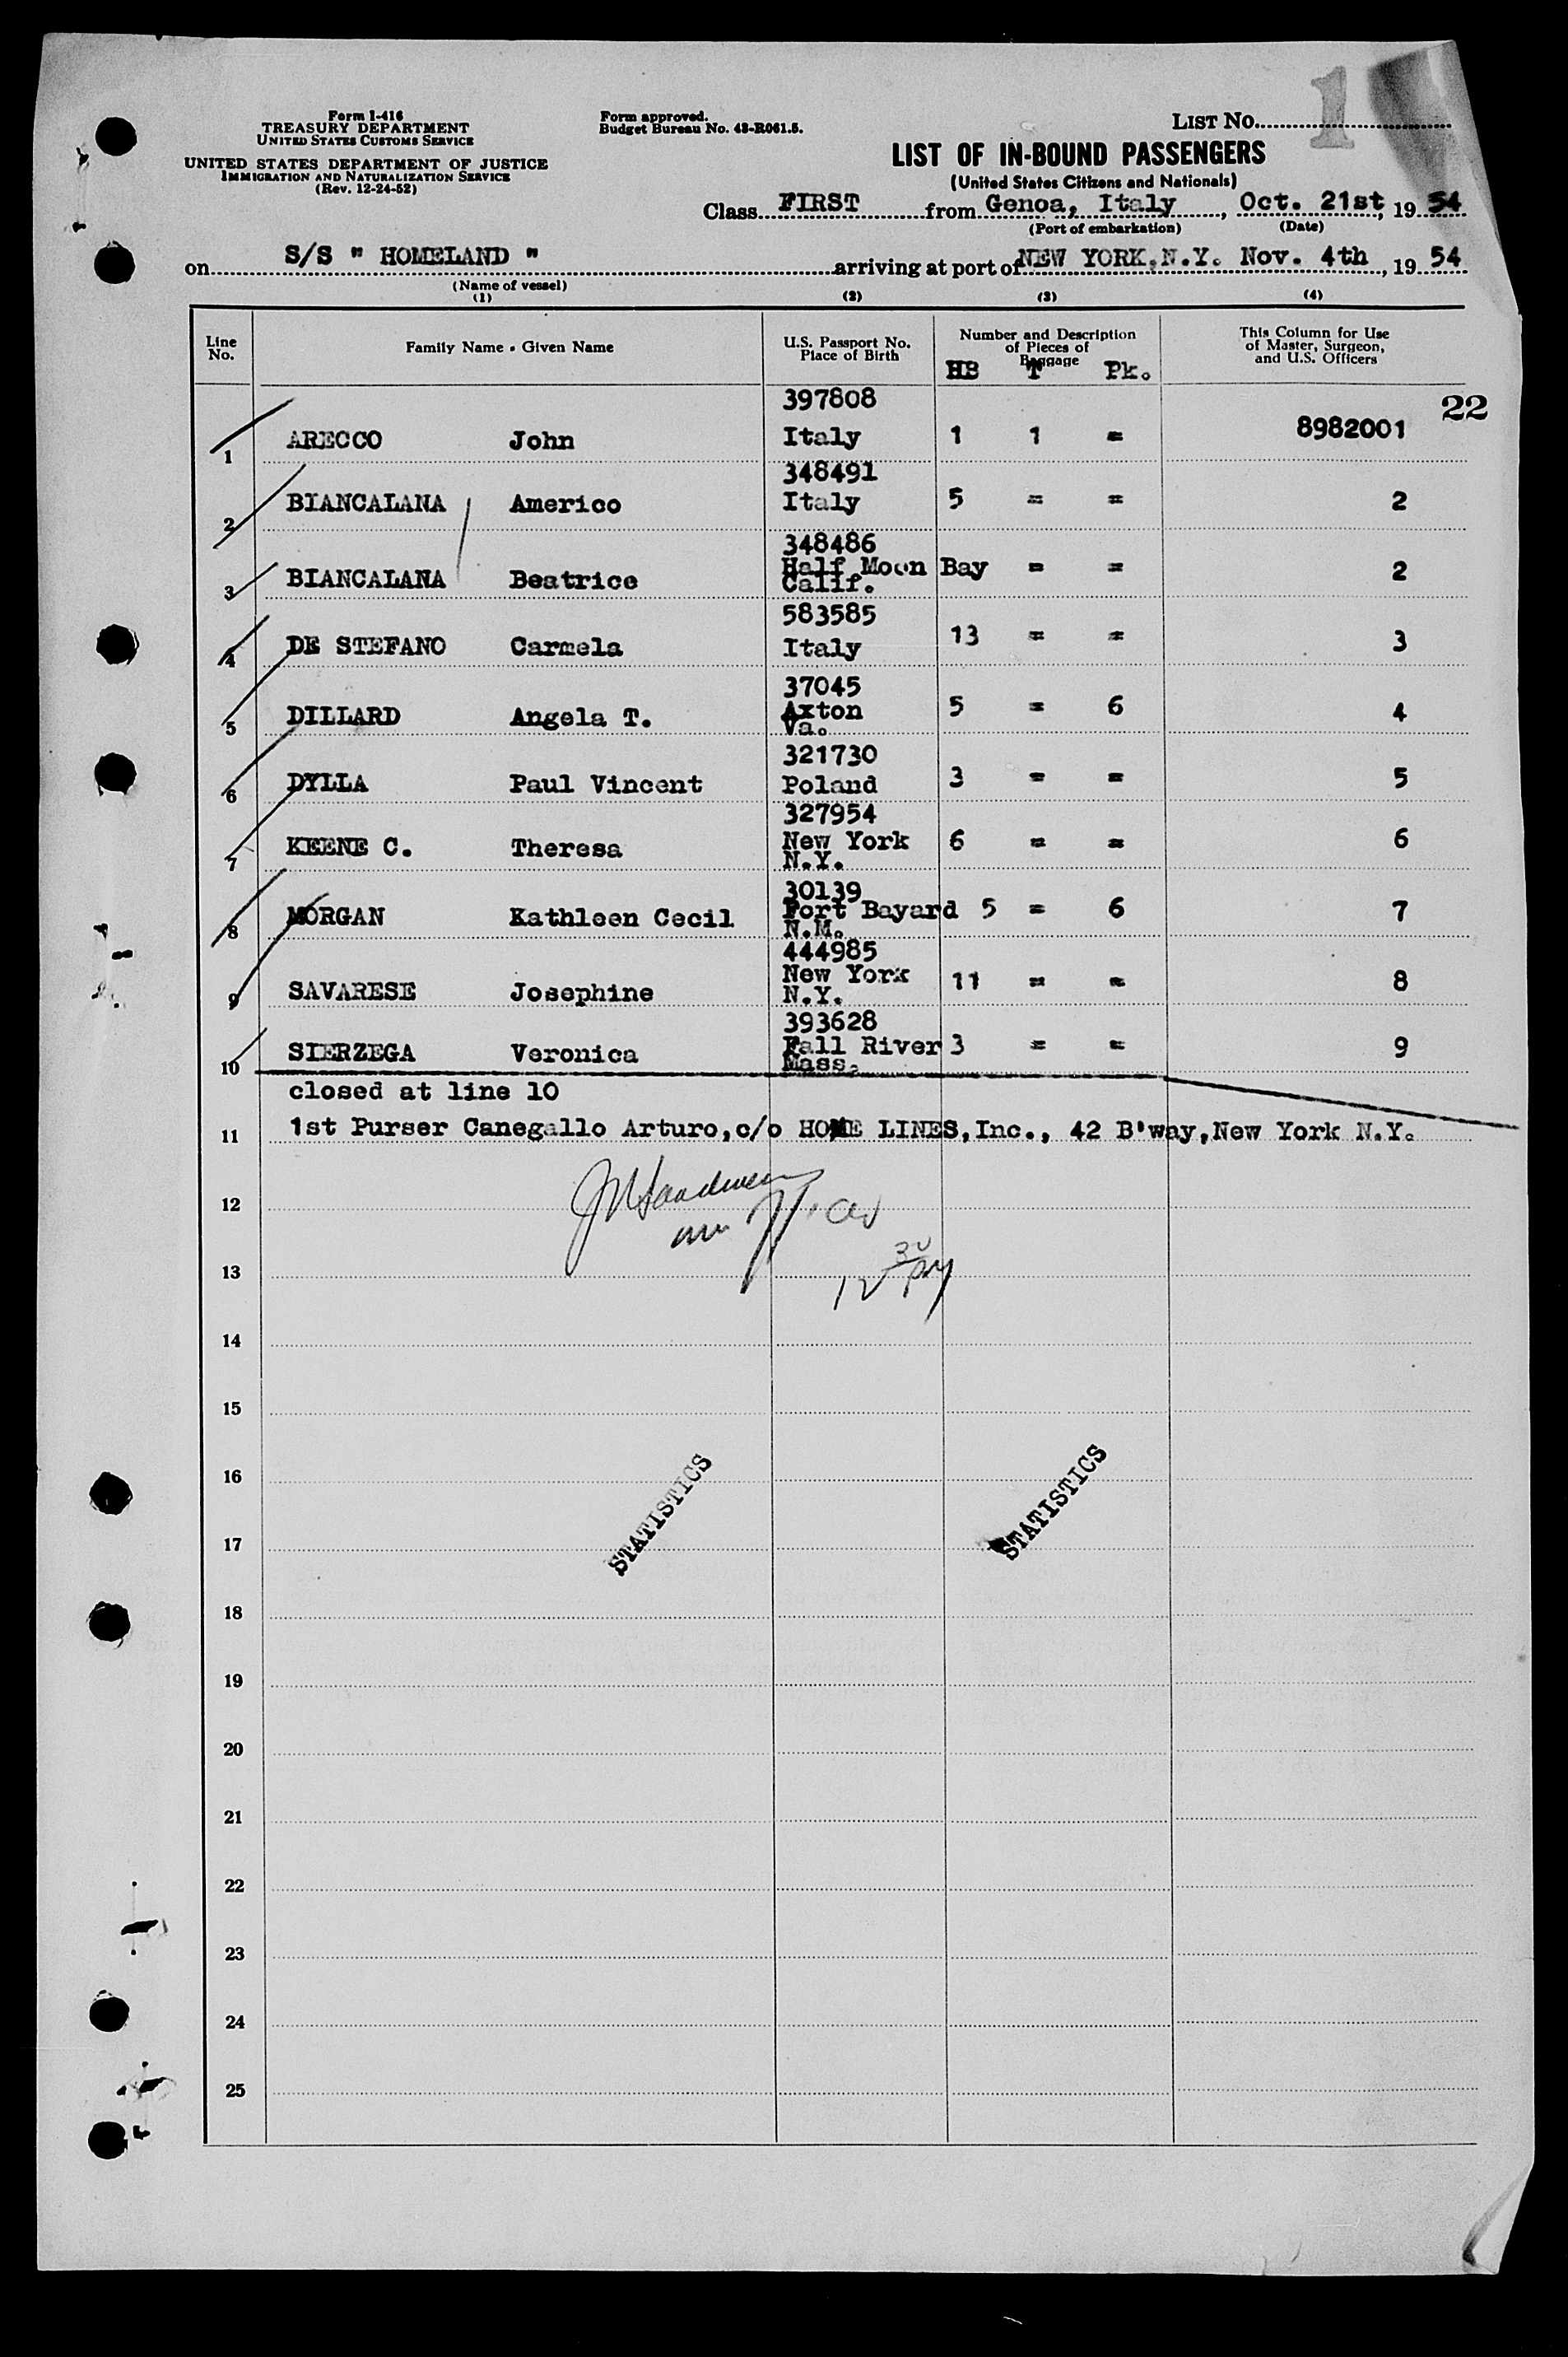 Form I-416
TREASURY DEPARTMENT
UNITED STATES CUSTOMS SERVICE
UNITED STATES DEPARTMENT OF JUSTICE
IMMIGRATION AND NATURALIZATION SERVICE
(Rev. 12-24-52)
Form approved.
Budget Bureau No. 43-R061.5.
LIST No. 1
LIST OF IN-BOUND PASSENGERS
(United States Citizens and Nationals)
Class FIRST from Genoa, Italy, Oct. 21st, 19 54
(Port of embarkation) (Date)
on S/S " HOMELAND " arriving at port of NEW YORK, N.Y. Nov. 4th, 19 54
(Name of vessel)
(1) (2) (3) (4)
Line No. Family Name - Given Name U.S. Passport No. Place of Birth Number and Description of Pieces of Baggage This Column for Use of Master, Surgeon, and U.S. Officers
HB T Pk.
22
397808
1 ARECCO John Italy 1 1 = 8982001
348491
2 BIANCALANA Americo Italy 5 = = 2
348486
3 BIANCALANA Beatrice Half Moon Bay = = 2
Calif.
583585
4 DE STEFANO Carmela Italy 13 = = 3
37045
5 DILLARD Angela T. Axton 5 = 6 4
Va.
321730
6 DYLLA Paul Vincent Poland 3 = = 5
327954
7 KEENE C. Theresa New York 6 = = 6
N.Y.
30139
8 MORGAN Kathleen Cecil Fort Bayard 5 = 6 7
N.M.
444985
9 SAVARESE Josephine New York 11 = = 8
N.Y.
393628
10 SIERZEGA Veronica Fall River 3 = = 9
Mass.
closed at line 10
11 1st Purser Canegallo Arturo, c/o HOME LINES, Inc., 42 B'way, New York N.Y.
12
13
12 30 PM
14
15
16
STATISTICS STATISTICS
17
18
19
20
21
22
23
24
25